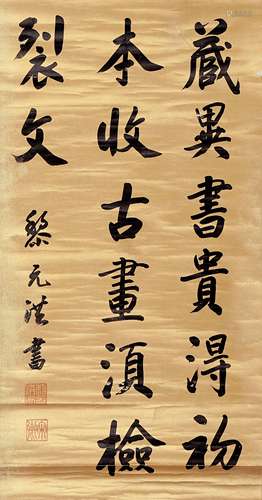 藏異書貴得初
本收古畫須檢
裂文
黎元洪書